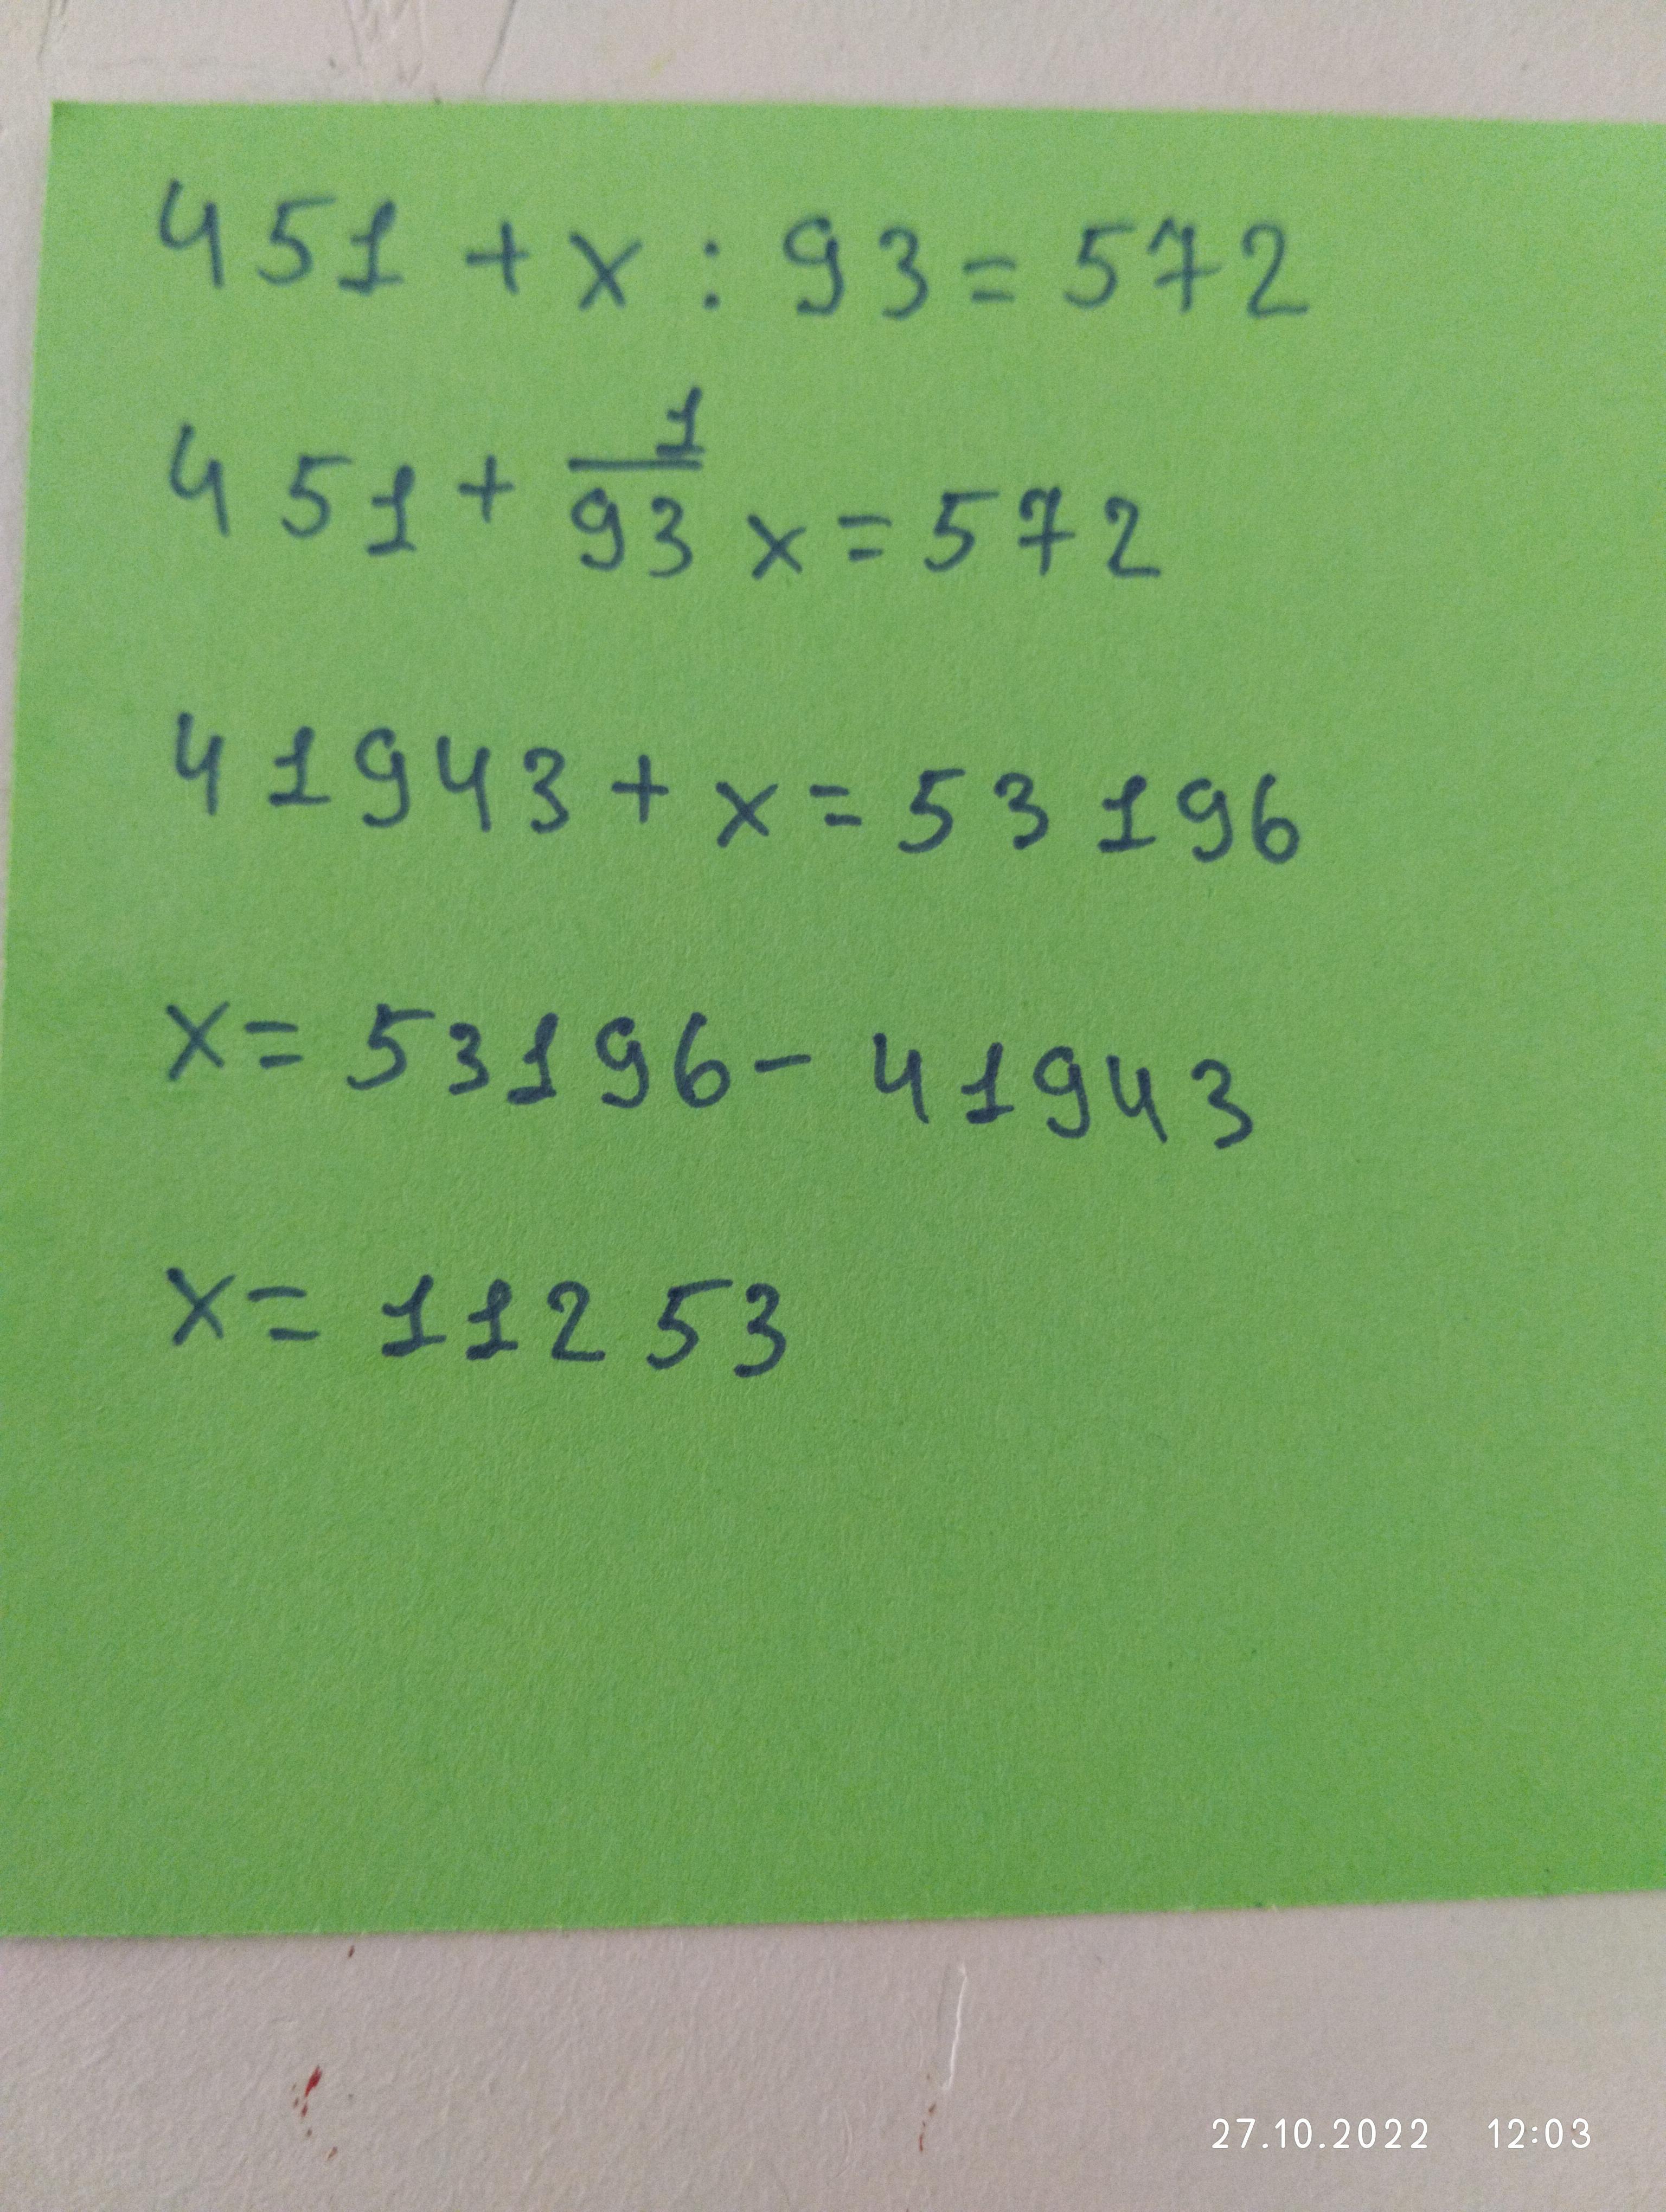 451 + x : 93 = 572
451 + 1/93 x = 572
41943 + x = 53196
x = 53196 - 41943
x = 11253
27.10.2022 12:03